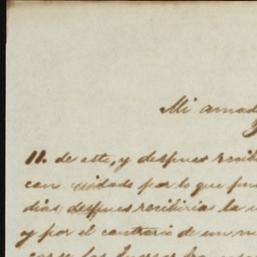 Mi amad
11. de este, y despues recib
con cuidado por lo que pu
dias despues recibiria la
y por el contrario de un m